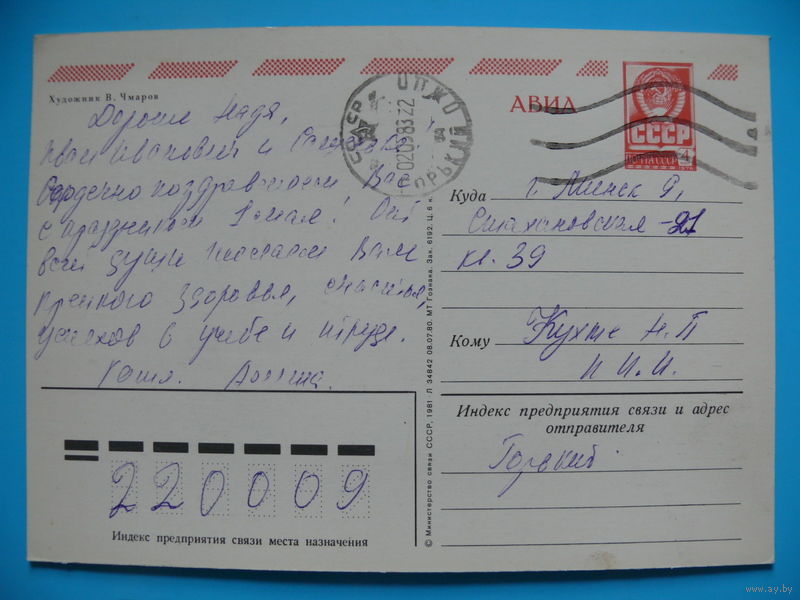 Художник В. Чмаров
АВИА
СССР
ПОЧТА СССР
4
Дорогие Надя,
Иван Иванович и
Сердечно поздравляем Вас
с праздником 1 мая! От
всей души желаем Вам
крепкого здоровья, счастья,
успехов в учебе и труде.
Куда г. Минск 9,
Стахановская - 21
кв. 39
Кому Кухте Н. П
и И. И.
Индекс предприятия связи и адрес
отправителя
Горький
220009
Индекс предприятия связи места назначения
© Министерство связи СССР, 1981 Л 34842 08.07.80. МТ Гознака. Зак. 6192. Ц. 6 к.
www.ay.by